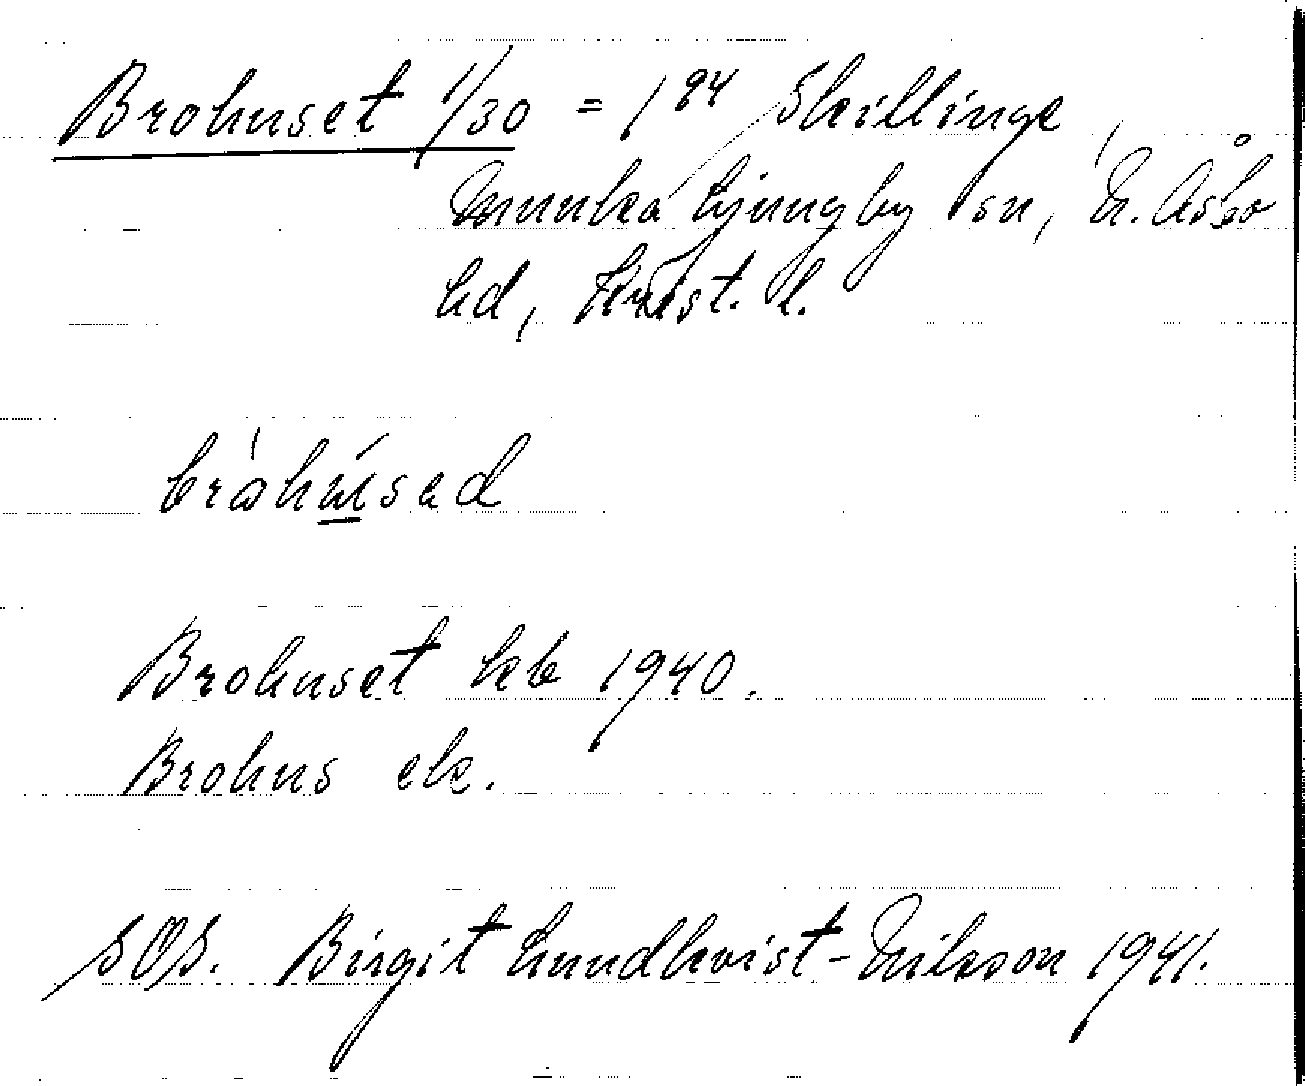 Brohuset 1/30 = 1⁹⁴ Skillinge,
Munka Ljungby sn, N. Åsbo
hd, Krist. l.
bròhúsed
Brohuset kb 1940.
Brohus ek.
SOS. Birgit Lundkvist-Nilsson 1941.